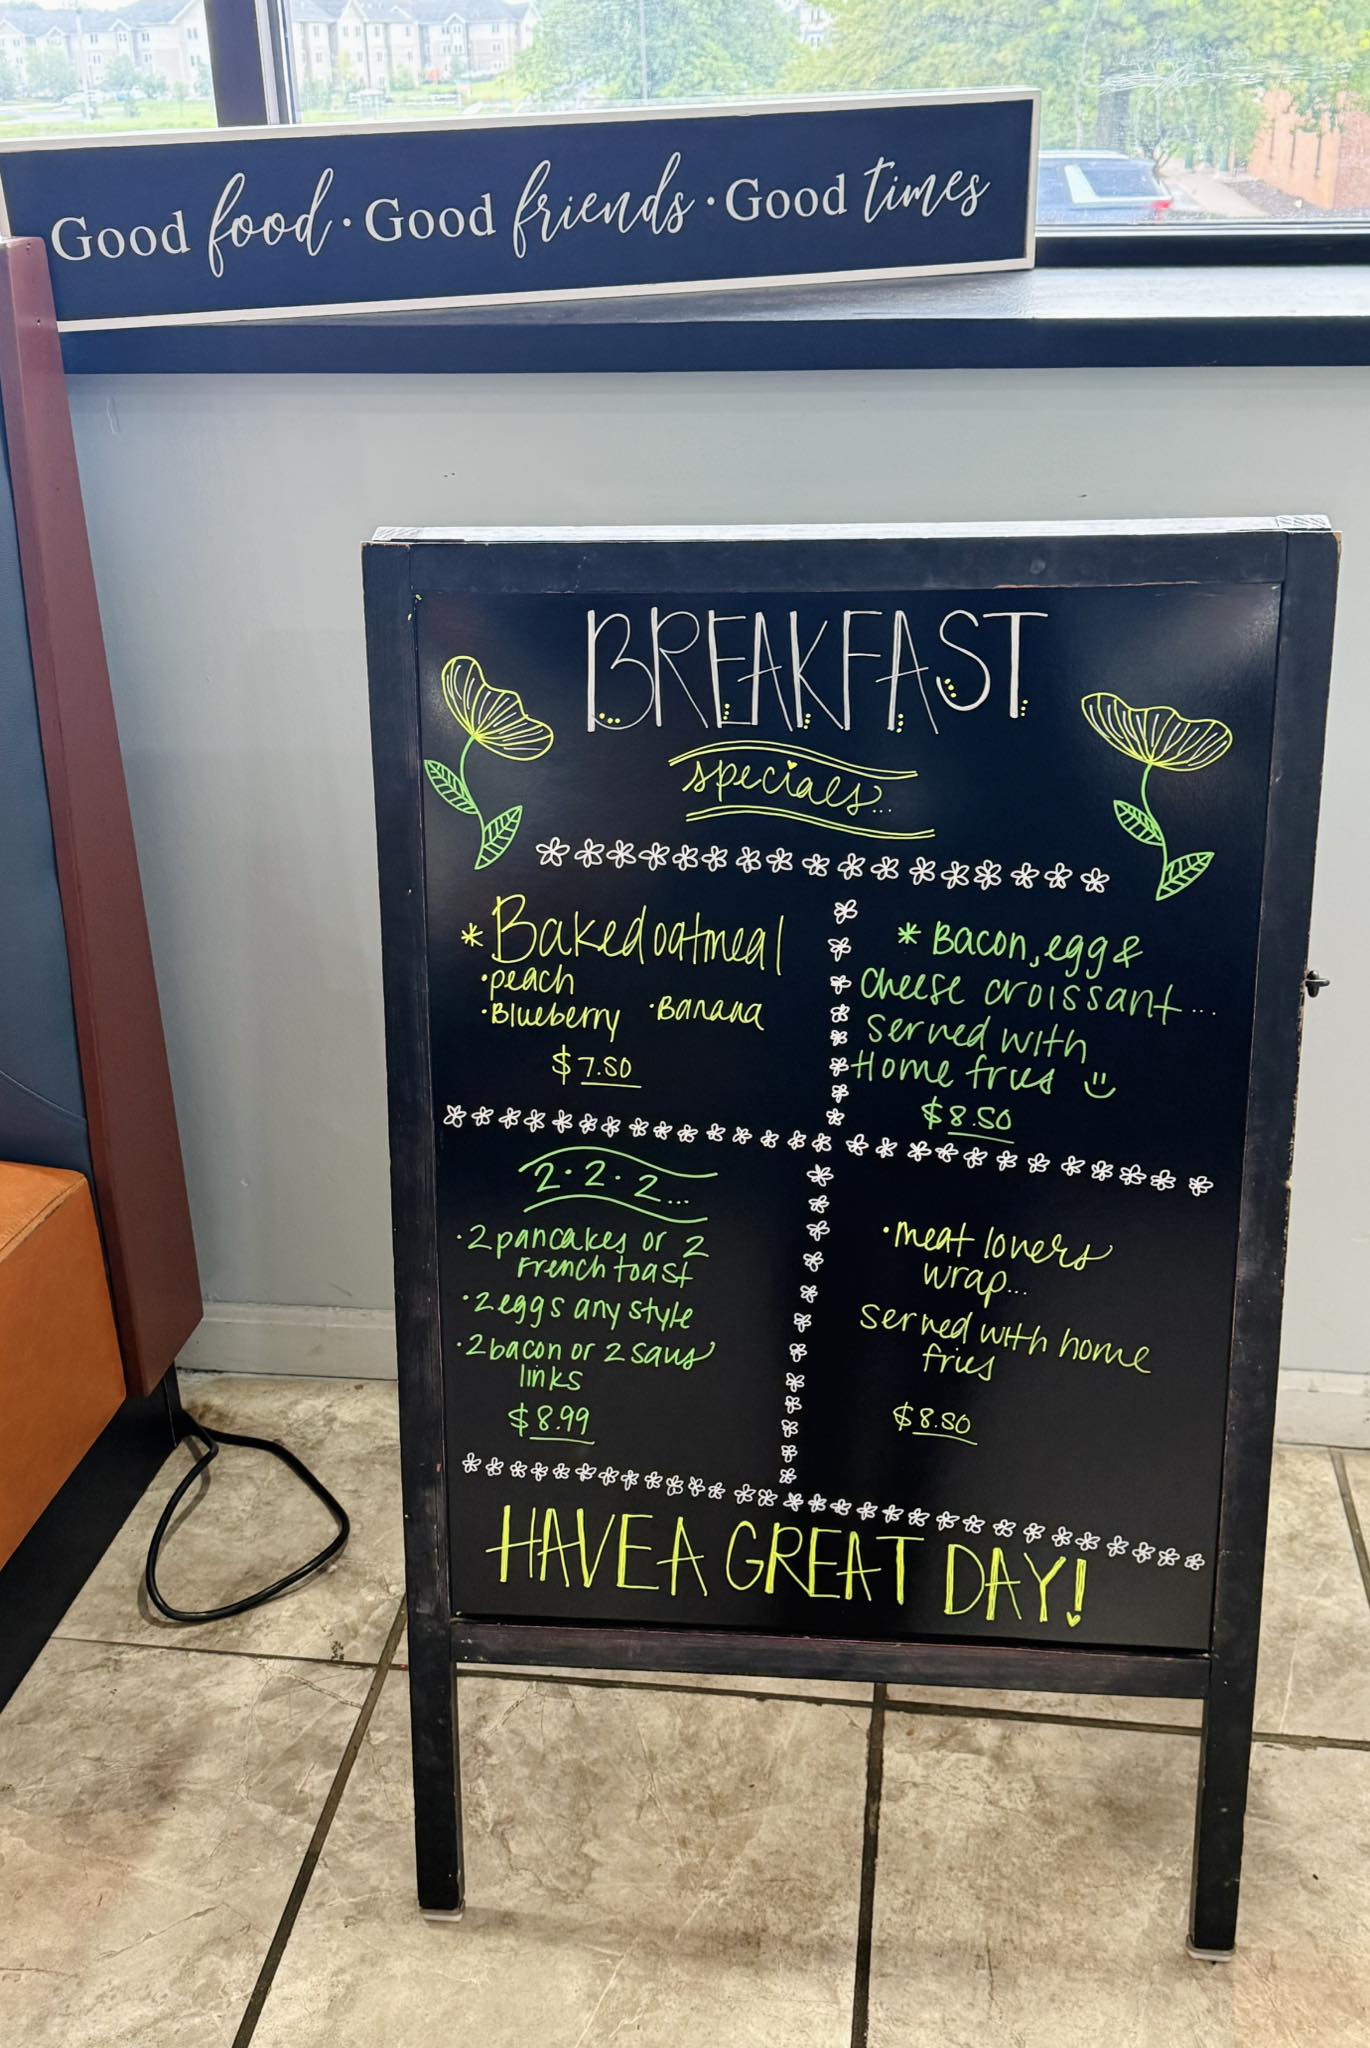 Good food · Good friends · Good times
BREAKFAST
specials...
* Baked oatmeal
• peach
• Blueberry • Banana
$7.50
* Bacon, egg &
Cheese croissant...
Served with
Home fries
$8.50
2 · 2 · 2...
• 2 pancakes or 2
French toast
• 2 eggs any style
• 2 bacon or 2 saus
links
$8.99
• meat lovers
wrap...
Served with home
fries
$8.50
HAVE A GREAT DAY!